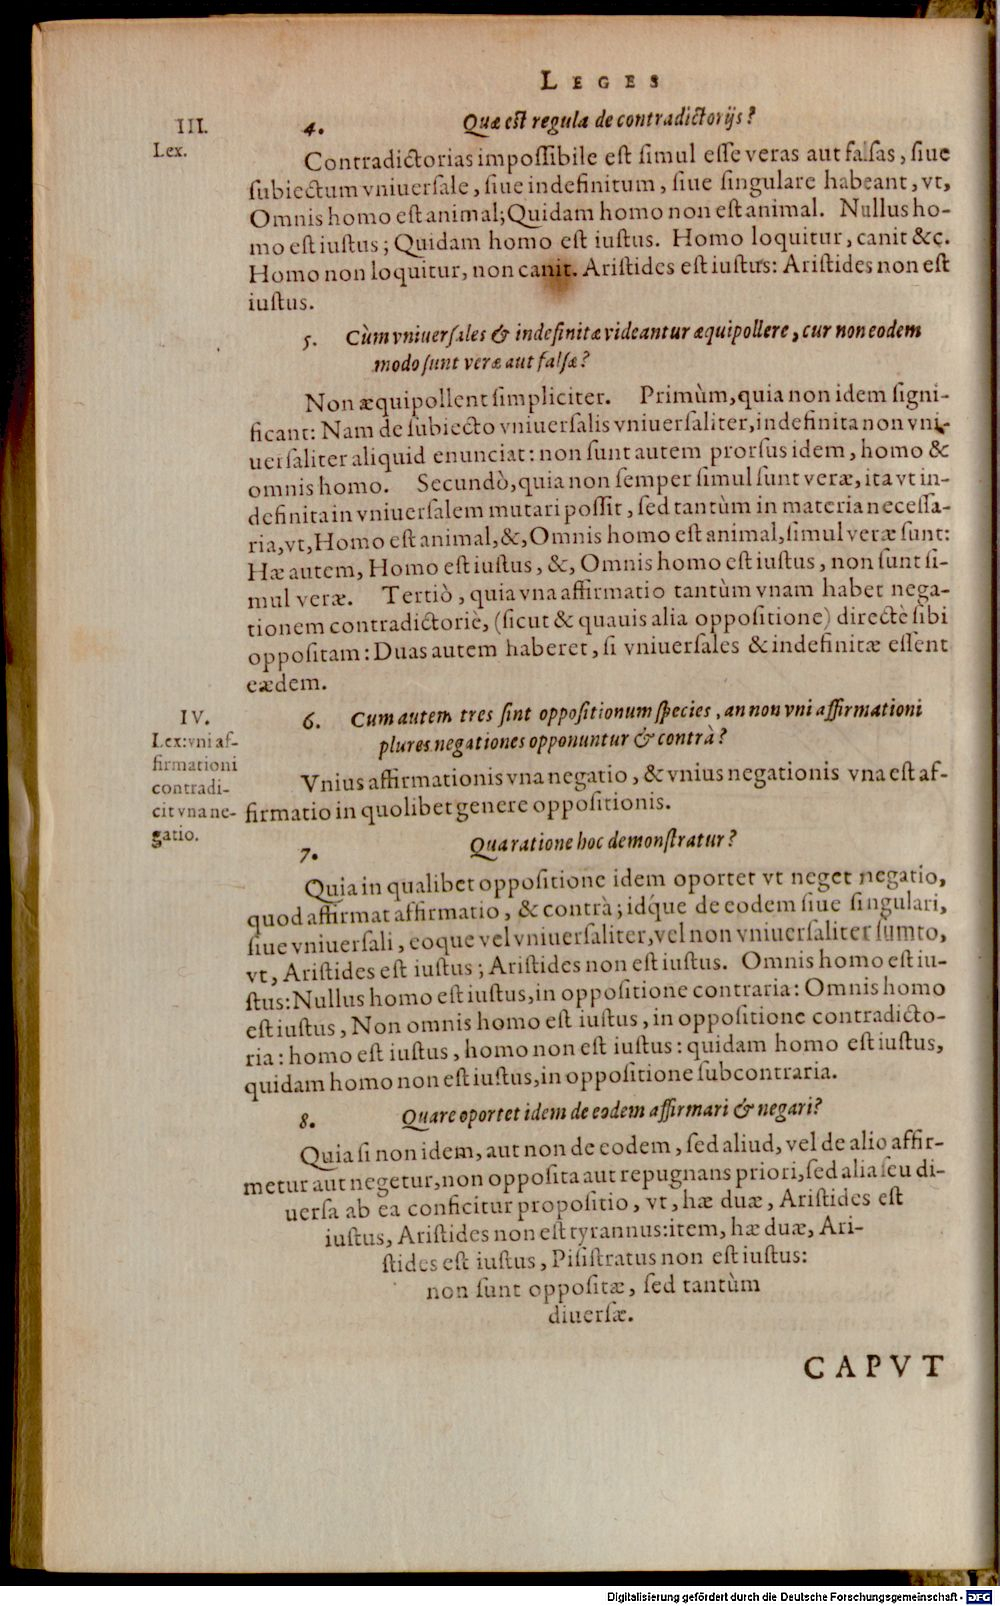 LEGES
III.
Lex.
4. Quæ est regula de contradictorijs?
Contradictorias impossibile est simul esse veras aut falsas, siue
subiectum vniuersale, siue indefinitum, siue singulare habeant, vt,
Omnis homo est animal; Quidam homo non est animal. Nullus ho-
mo est iustus; Quidam homo est iustus. Homo loquitur, canit &c.
Homo non loquitur, non canit. Aristides est iustus: Aristides non est
iustus.
5. Cùm vniuersales & indefinitæ videantur æquipollere, cur non eodem
modo sunt veræ aut falsæ?
Non æquipollent simpliciter. Primùm, quia non idem signi-
ficant: Nam de subiecto vniuersalis vniuersaliter, indefinita non vni-
uersaliter aliquid enunciat: non sunt autem prorsus idem, homo &
omnis homo. Secundò, quia non semper simul sunt veræ, ita vt in-
definita in vniuersalem mutari possit, sed tantùm in materia necessa-
ria, vt, Homo est animal, &, Omnis homo est animal, simul veræ sunt:
Hæ autem, Homo est iustus, &, Omnis homo est iustus, non sunt si-
mul veræ. Tertiò, quia vna affirmatio tantùm vnam habet nega-
tionem contradictoriè, (sicut & quauis alia oppositione) directè sibi
oppositam: Duas autem haberet, si vniuersales & indefinitæ essent
eædem.
IV.
Lex: vni af-
firmationi
contradi-
cit vna ne-
gatio.
6. Cum autem tres sint oppositionum species, an non vni affirmationi
plures negationes opponuntur & contrà?
Vnius affirmationis vna negatio, & vnius negationis vna est af-
firmatio in quolibet genere oppositionis.
7. Qua ratione hoc demonstratur?
Quia in qualibet oppositione idem oportet vt neget negatio,
quod affirmat affirmatio, & contrà; idq́ue de eodem siue singulari,
siue vniuersali, eoque vel vniuersaliter, vel non vniuersaliter sumto,
vt, Aristides est iustus; Aristides non est iustus. Omnis homo est iu-
stus: Nullus homo est iustus, in oppositione contraria: Omnis homo
est iustus, Non omnis homo est iustus, in oppositione contradicto-
ria: homo est iustus, homo non est iustus: quidam homo est iustus,
quidam homo non est iustus, in oppositione subcontraria.
8. Quare oportet idem de eodem affirmari & negari?
Quia si non idem, aut non de eodem, sed aliud, vel de alio affir-
metur aut negetur, non opposita aut repugnans priori, sed alia seu di-
uersa ab ea conficitur propositio, vt, hæ duæ, Aristides est
iustus, Aristides non est tyrannus: item, hæ duæ, Ari-
stides est iustus, Pisistratus non est iustus:
non sunt oppositæ, sed tantùm
diuersæ.
CAPVT
Digitalisierung gefördert durch die Deutsche Forschungsgemeinschaft - DFG